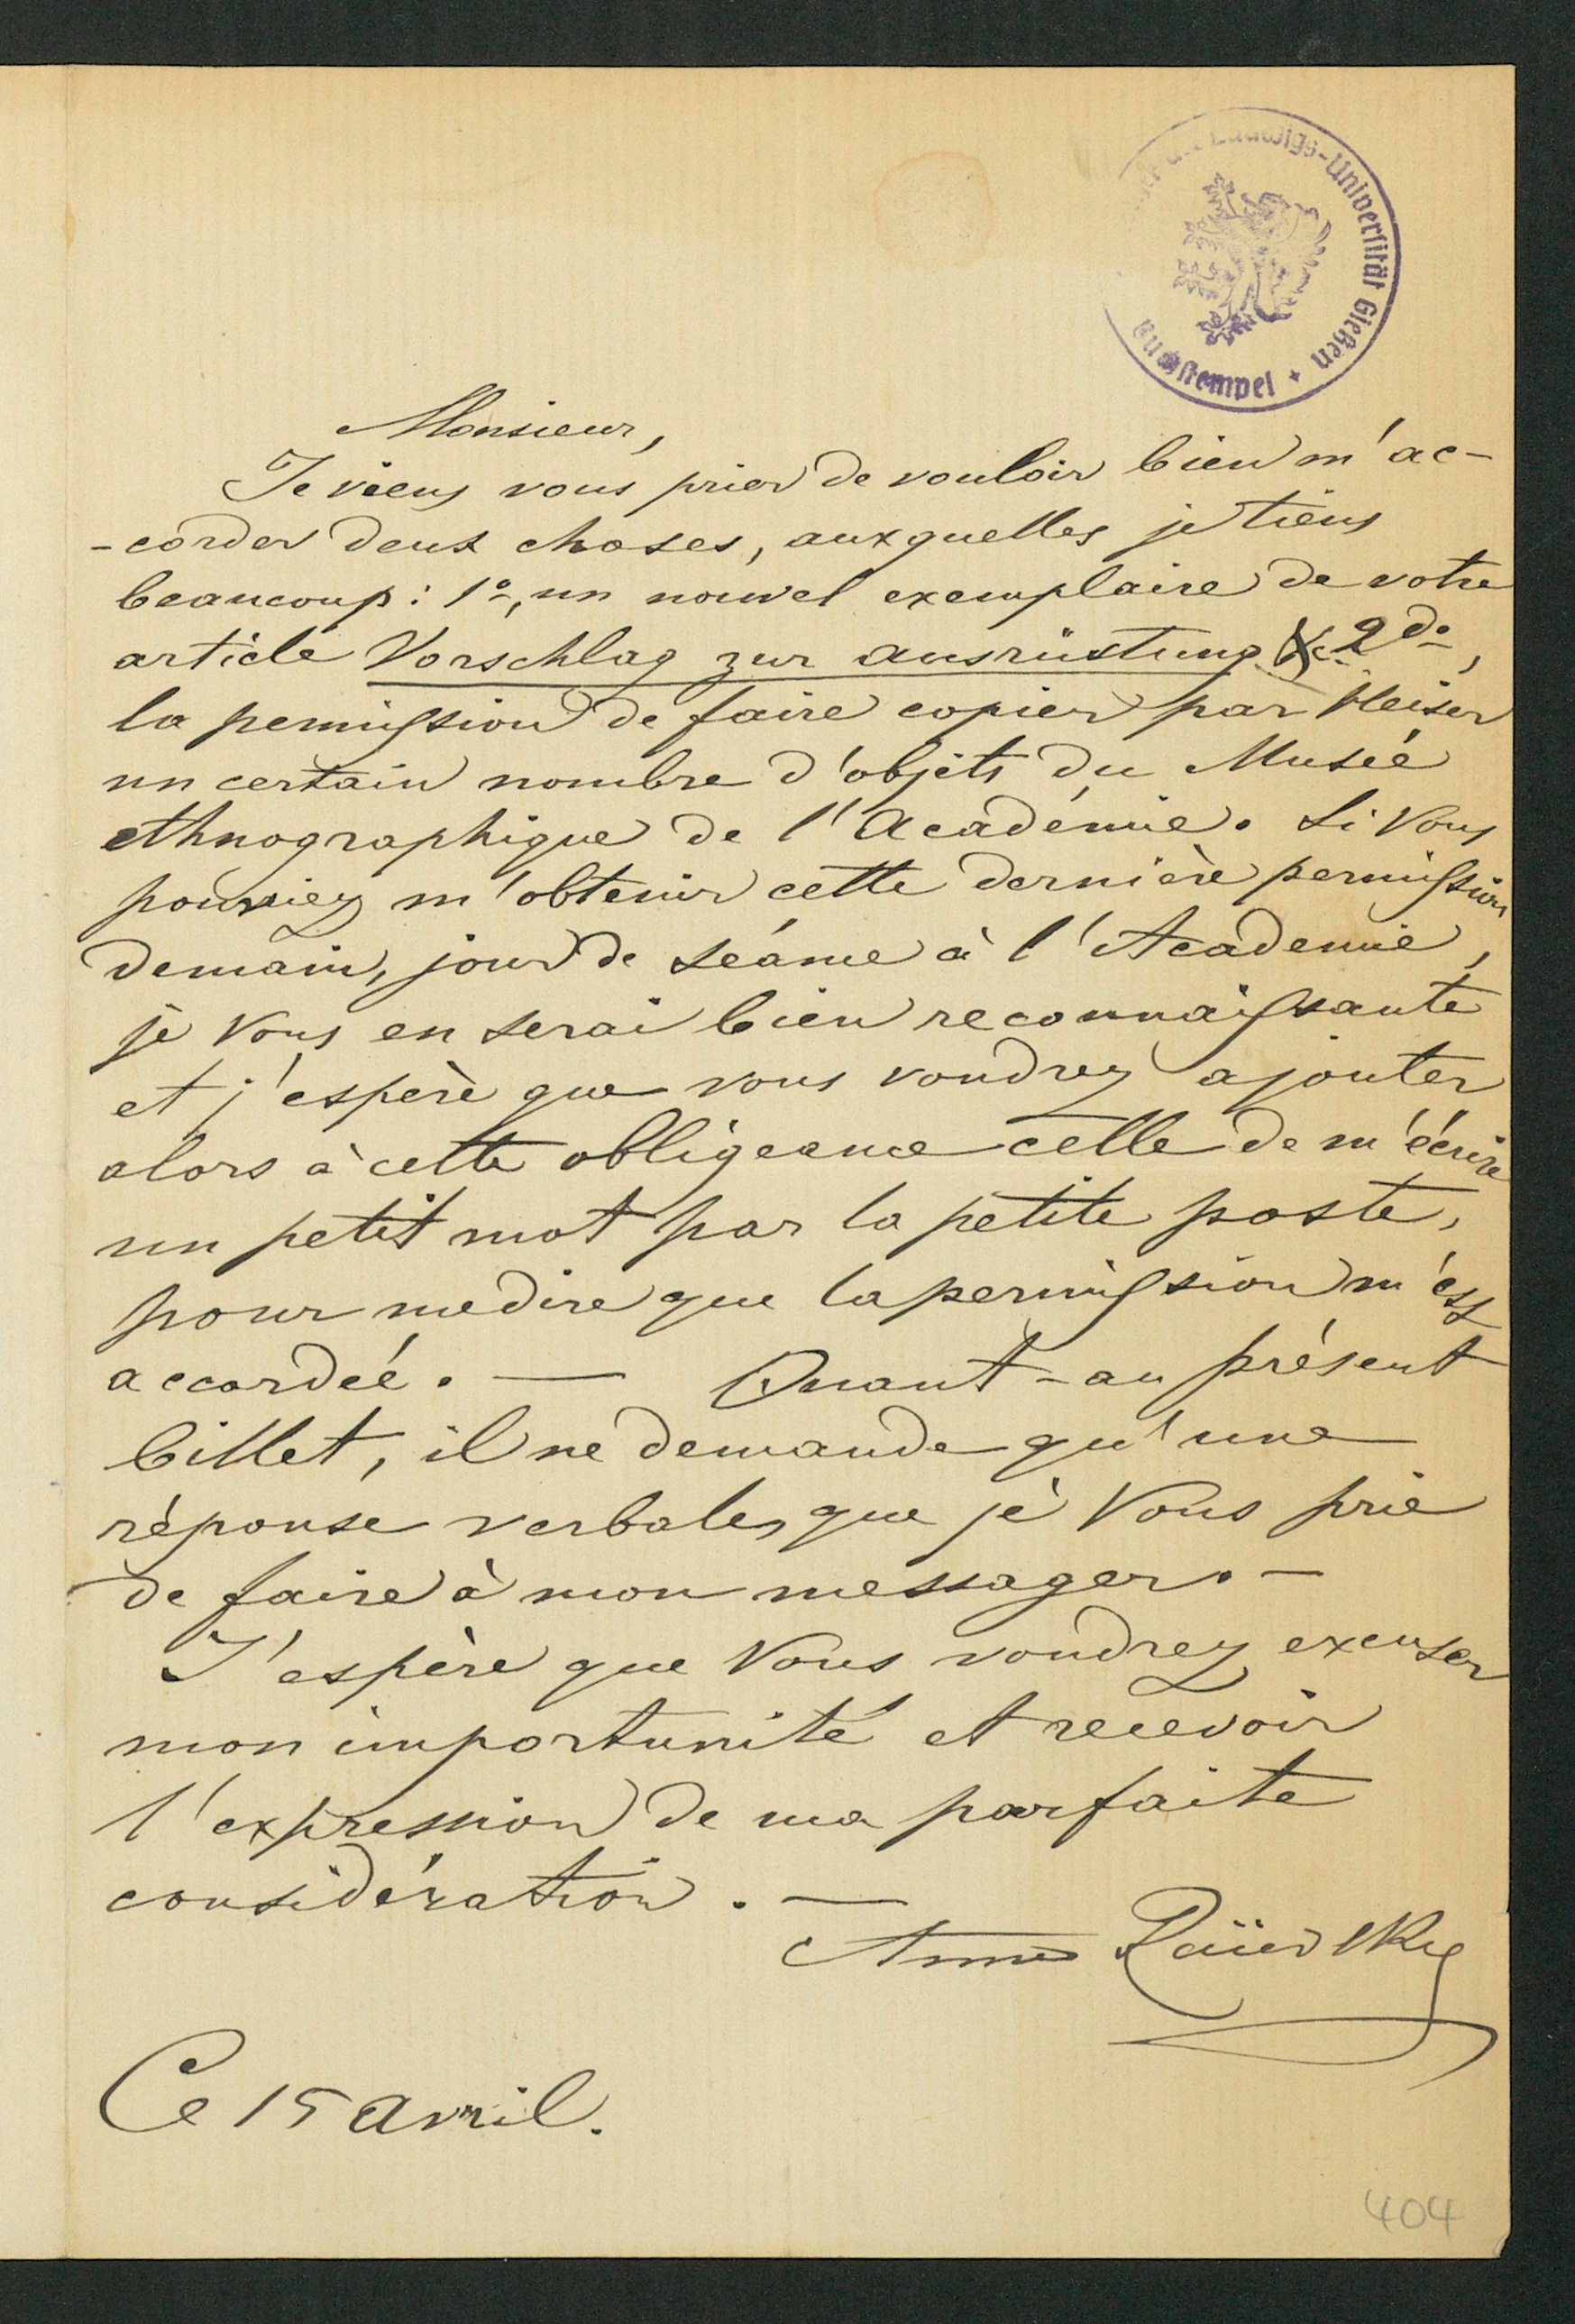 Ludwigs-Universität Gießen
Buchstempel
Monsieur,
Je viens vous prier de vouloir bien m'ac-
-corder deux choses, auxquelles je tiens
beaucoup: 1º, un nouvel exemplaire de votre
article Vorschlag zur ausrüstung &c. 2do,
la permission de faire copier par
un certain nombre d'objets du Musée
ethnographique de l'Académie. Si Vous
pouviez m'obtenir cette dernière permission
demain, jour de séance à l'Academie,
je Vous en serai bien reconnaissante
et j'espère que vous voudrez ajouter
alors à cette obligeance celle de m'écrire
un petit mot par la petite poste,
pour me dire que la permission m'est
accordée. — Quant-au présent
billet, il ne demande qu'une
réponse verbale, que je Vous prie
de faire à mon messager. —
J'espère que Vous voudrez excuser
mon importunité et recevoir
l'expression de ma parfaite
considération. —
Anna Raïevsky
Ce 15 avril.
404